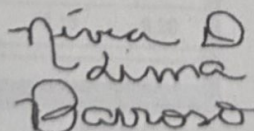 Nívea D
Lima
Barroso